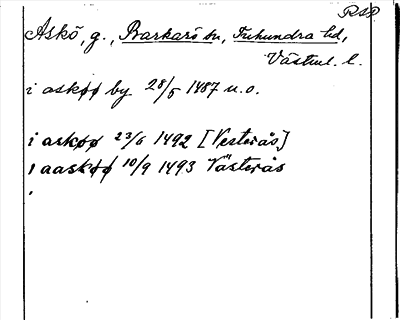 RSP
Askö, g., Barkarö sn, Tuhundra hd,
Västml. l.
i askøø by 28/5 1487 u.o.
i askøø 23/6 1492 [Vesterås]
i aaskøø 10/9 1493 Västerås